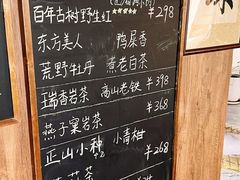 百年古树野生红 ¥298
东方美人 鸭屎香
荒野牡丹 煮老白茶
瑞香岩茶 高山老铁 ¥398
¥368
燕子窠岩茶
正山小种 小青柑
¥268
茶